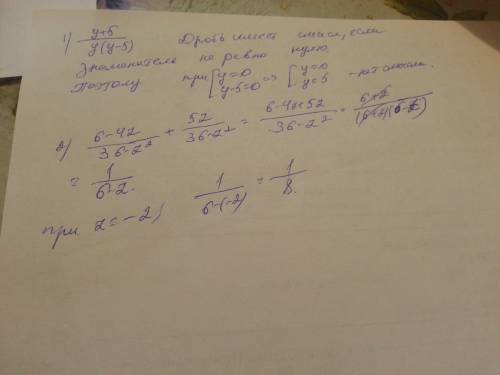 1) (y+5)/(y(y-5)) Дробь имеет смысл, если
Знаменатель не равно нулю.
Поэтому при [y=0 y-5=0 => [y=0 y=5 - нет смысла.
2) (6-4z)/(36-z²) + 5z/(36-z²) = (6-4z+5z)/(36-z²) = (6+z)/((6+z)(6-z))
= 1/(6-z).
при z=-2; 1/(6-(-2)) = 1/8.